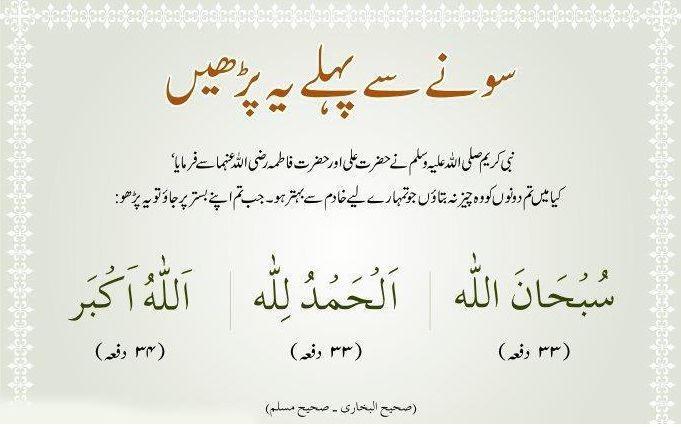 سونے سے پہلے یہ پڑھیں
نبی کریم صلی اللہ علیہ وسلم نے حضرت علی اور حضرت فاطمہ رضی اللہ عنہما سے فرمایا‘
کیا میں تم دونوں کو وہ چیز نہ بتاؤں جو تمہارے لیے خادم سے بہتر ہو۔ جب تم اپنے بستر پر جاؤ تو یہ پڑھو:
سُبْحَانَ اللّٰه
اَلْحَمْدُ لِلّٰه
اَللّٰهُ اَكْبَر
(۳۳ دفعہ)
(۳۳ دفعہ)
(۳۴ دفعہ)
(صحیح البخاری ۔ صحیح مسلم)